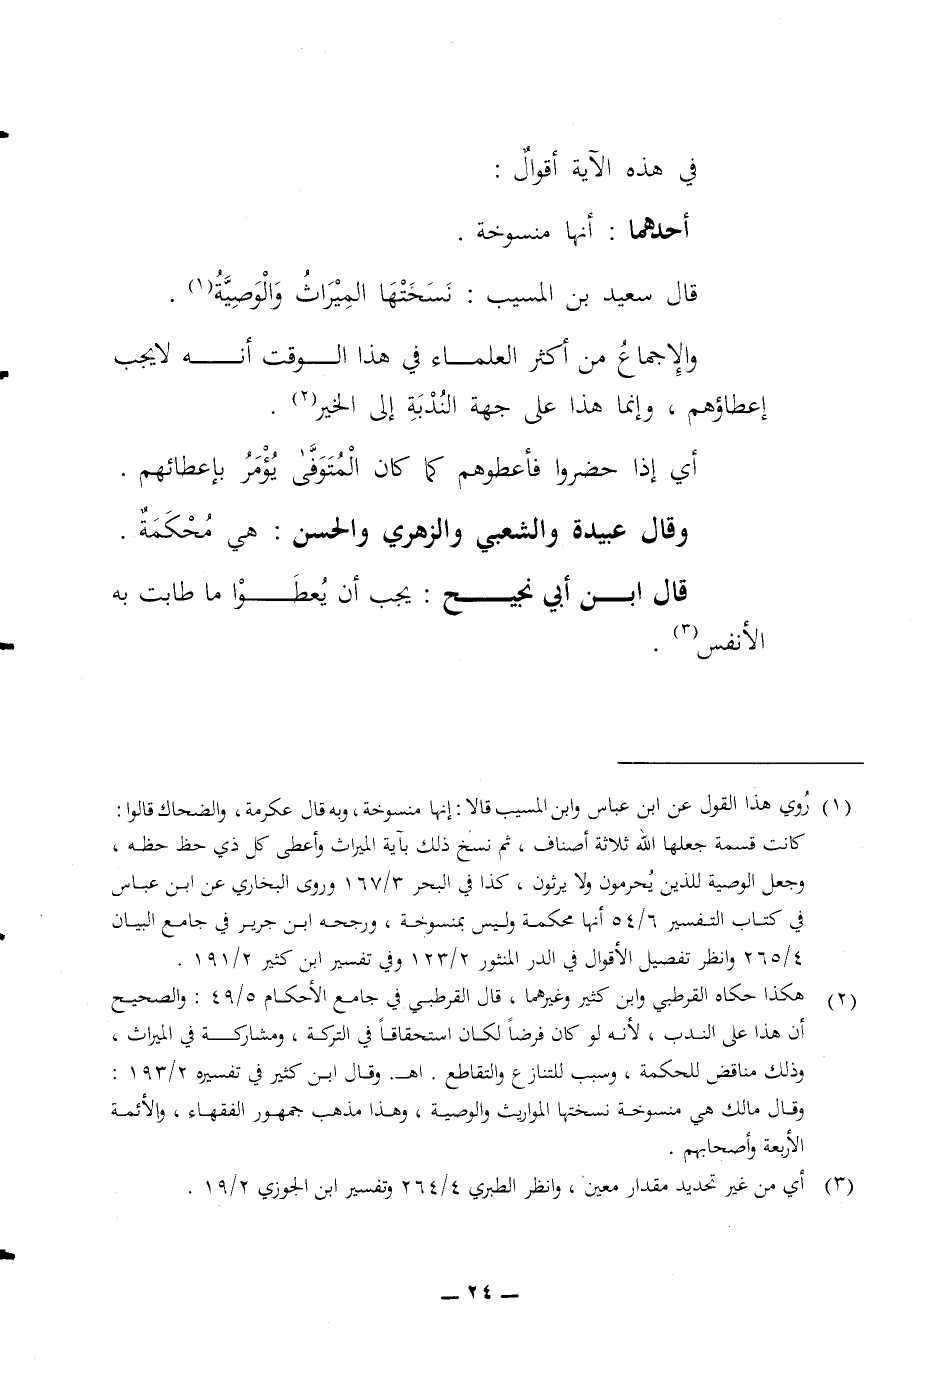 في هذه الآية أقوالٌ :
أحدهما : أنها منسوخة .
قال سعيد بن المسيب : نَسَخَتْهَا المِيْرَاثُ وَالْوَصِيَّةُ(١) .
والإِجماعُ من أكثر العلمـــاء في هذا الـــوقت أنـــــه لايجب
إعطاؤهم ، وإنما هذا على جهة النُدْبَةِ إلى الخير(٢) .
أي إذا حضروا فأعطوهم كما كان الْمُتَوَفَّىٰ يُؤْمَرُ بإعطائهم .
وقال عبيدة والشعبي والزهري والحسن : هي مُحْكَمَةٌ .
قال ابــــن أبي نجيـــــح : يجب أن يُعطَـــــوْا ما طابت به
الأنفس(٣) .
(١) رُوي هذا القول عن ابن عباس وابن المسيب قالا : إنها منسوخة ، وبه قال عكرمة ، والضحاك قالوا :
كانت قسمة جعلها الله ثلاثة أصناف ، ثم نسخ ذلك بآية الميراث وأعطى كل ذي حظ حظه ،
وجعل الوصية للذين يُحرمون ولا يرثون ، كذا في البحر ١٦٧/٣ وروى البخاري عن ابن عباس
في كتاب التفسير ٥٤/٦ أنها محكمة وليس بمنسوخة ، ورجحه ابن جرير في جامع البيان
٢٦٥/٤ وانظر تفصيل الأقوال في الدر المنثور ١٢٣/٢ وفي تفسير ابن كثير ١٩١/٢ .
(٢) هكذا حكاه القرطبي وابن كثير وغيرهما ، قال القرطبي في جامع الأحكام ٤٩/٥ : والصحيح
أن هذا على الندب ، لأنه لو كان فرضاً لكان استحقاقاً في التركة ، ومشاركـــة في الميراث ،
وذلك مناقض للحكمة ، وسبب للتنازع والتقاطع . اهـ. وقال ابن كثير في تفسيره ١٩٣/٢ :
وقال مالك هي منسوخة نسختها المواريث والوصية ، وهذا مذهب جمهور الفقهاء ، والأئمة
الأربعة وأصحابهم .
(٣) أي من غير تحديد مقدار معين ، وانظر الطبري ٢٦٤/٤ وتفسير ابن الجوزي ١٩/٢ .
ــ ٢٤ ــ